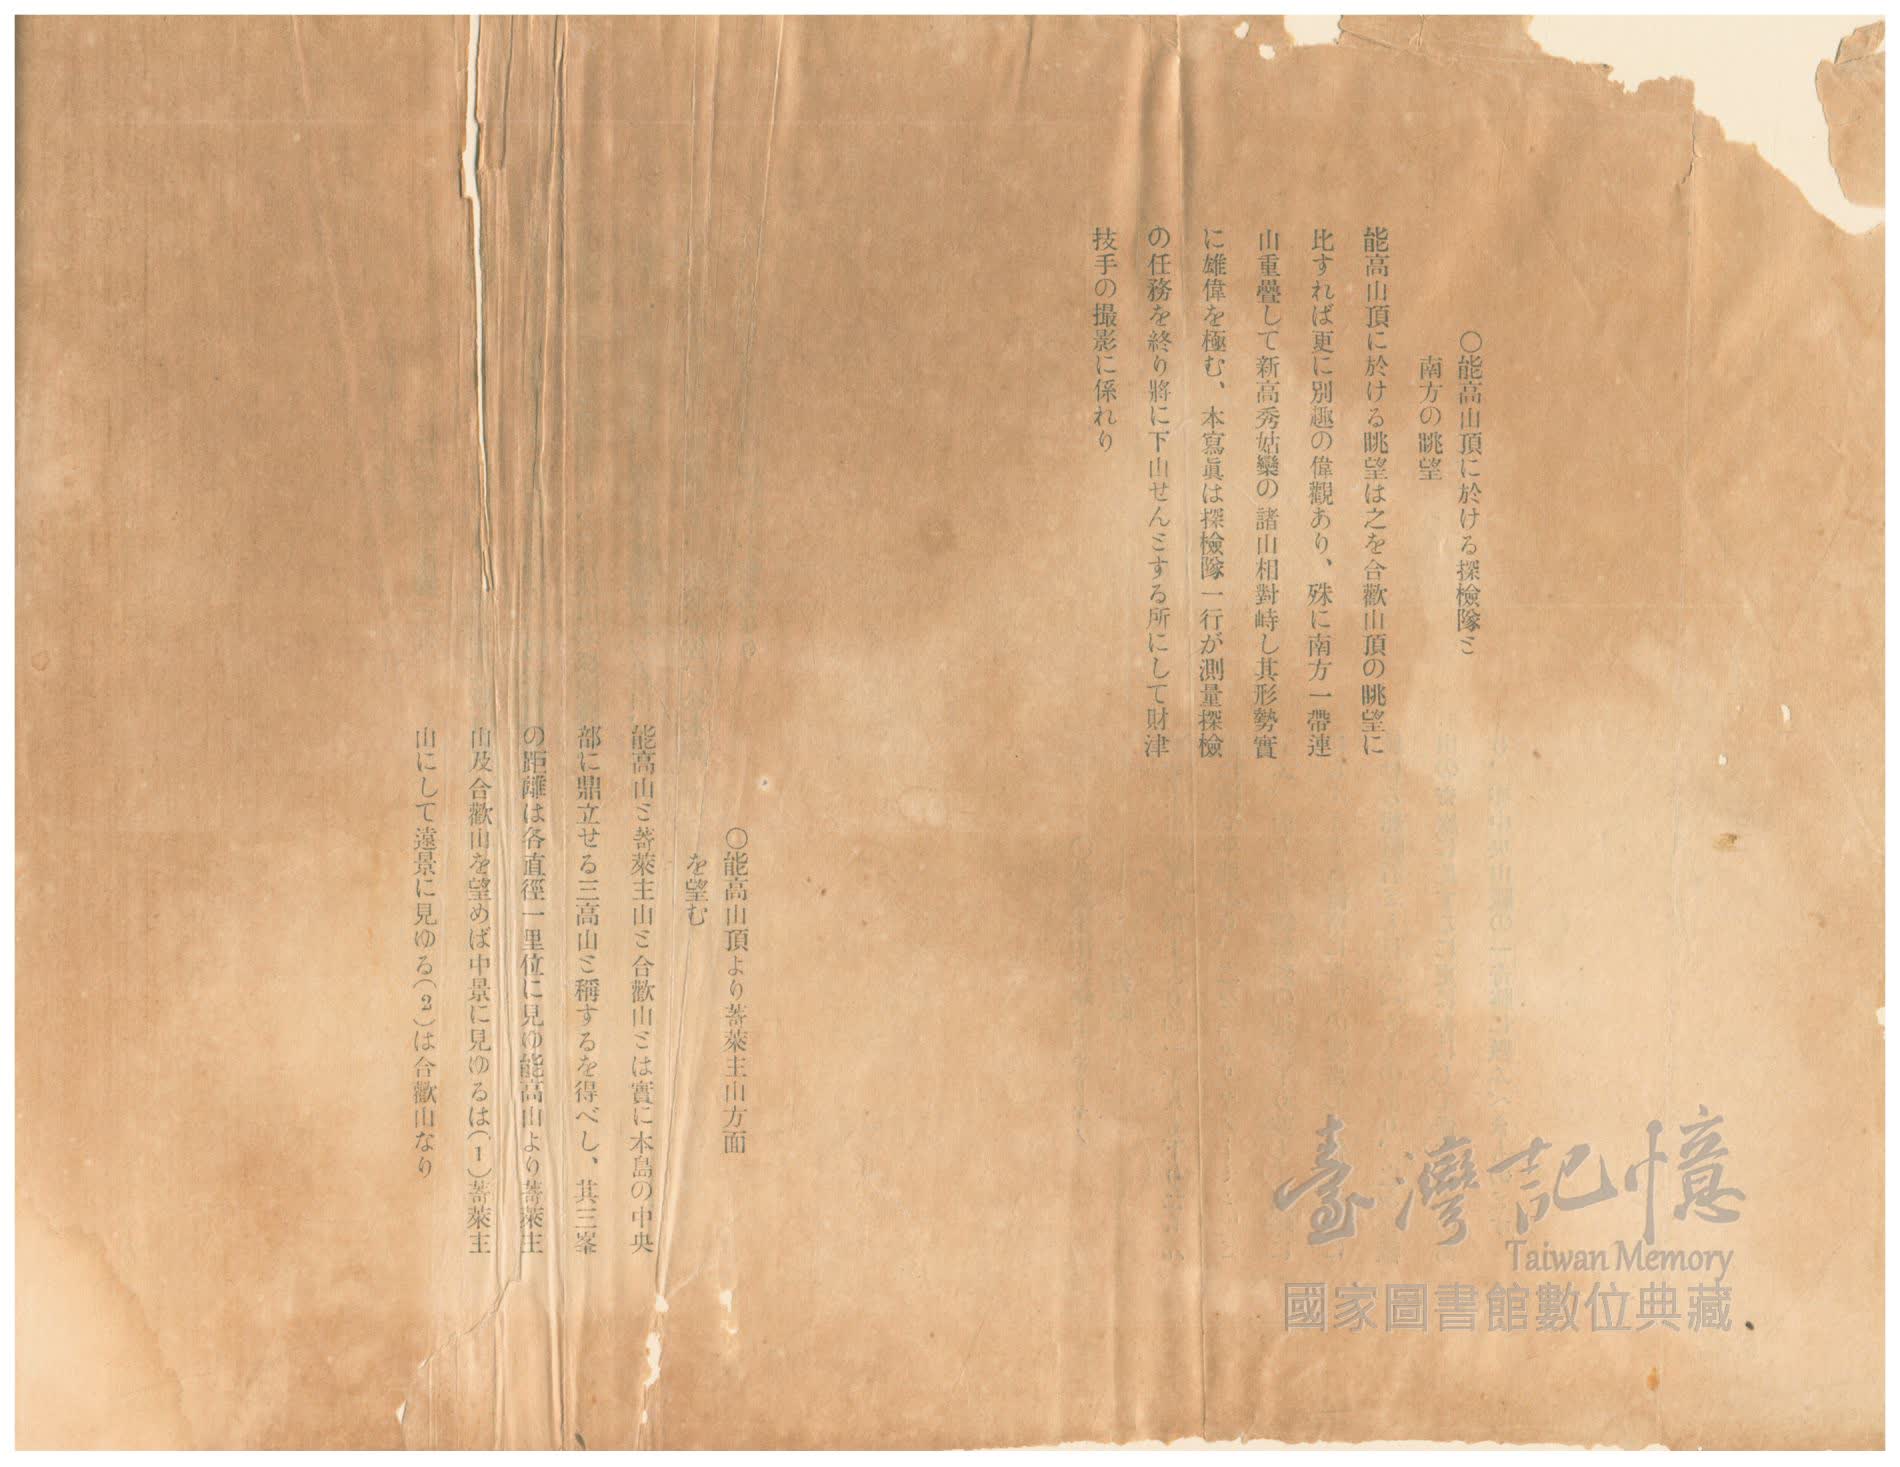 〇能高山頂に於ける探檢隊と
南方の眺望
能高山頂に於ける眺望は之を合歡山頂の眺望に
比すれば更に別趣の偉觀あり、殊に南方一帶連
山重疊して新高秀姑巒の諸山相對峙し其形勢實
に雄偉を極む、本寫眞は探檢隊一行が測量探檢
の任務を終り將に下山せんとする所にして財津
技手の撮影に係れり
〇能高山頂より菩萊主山方面
を望む
能高山と菩萊主山と合歡山とは實に本島の中央
部に鼎立せる三高山と稱するを得べし、其三峯
の距離は各直徑一里位に見ゆ能高山より菩萊主
山及合歡山を望めば中景に見ゆるは(1)菩萊主
山にして遠景に見ゆる(2)は合歡山なり
臺灣記憶
Taiwan Memory
國家圖書館數位典藏